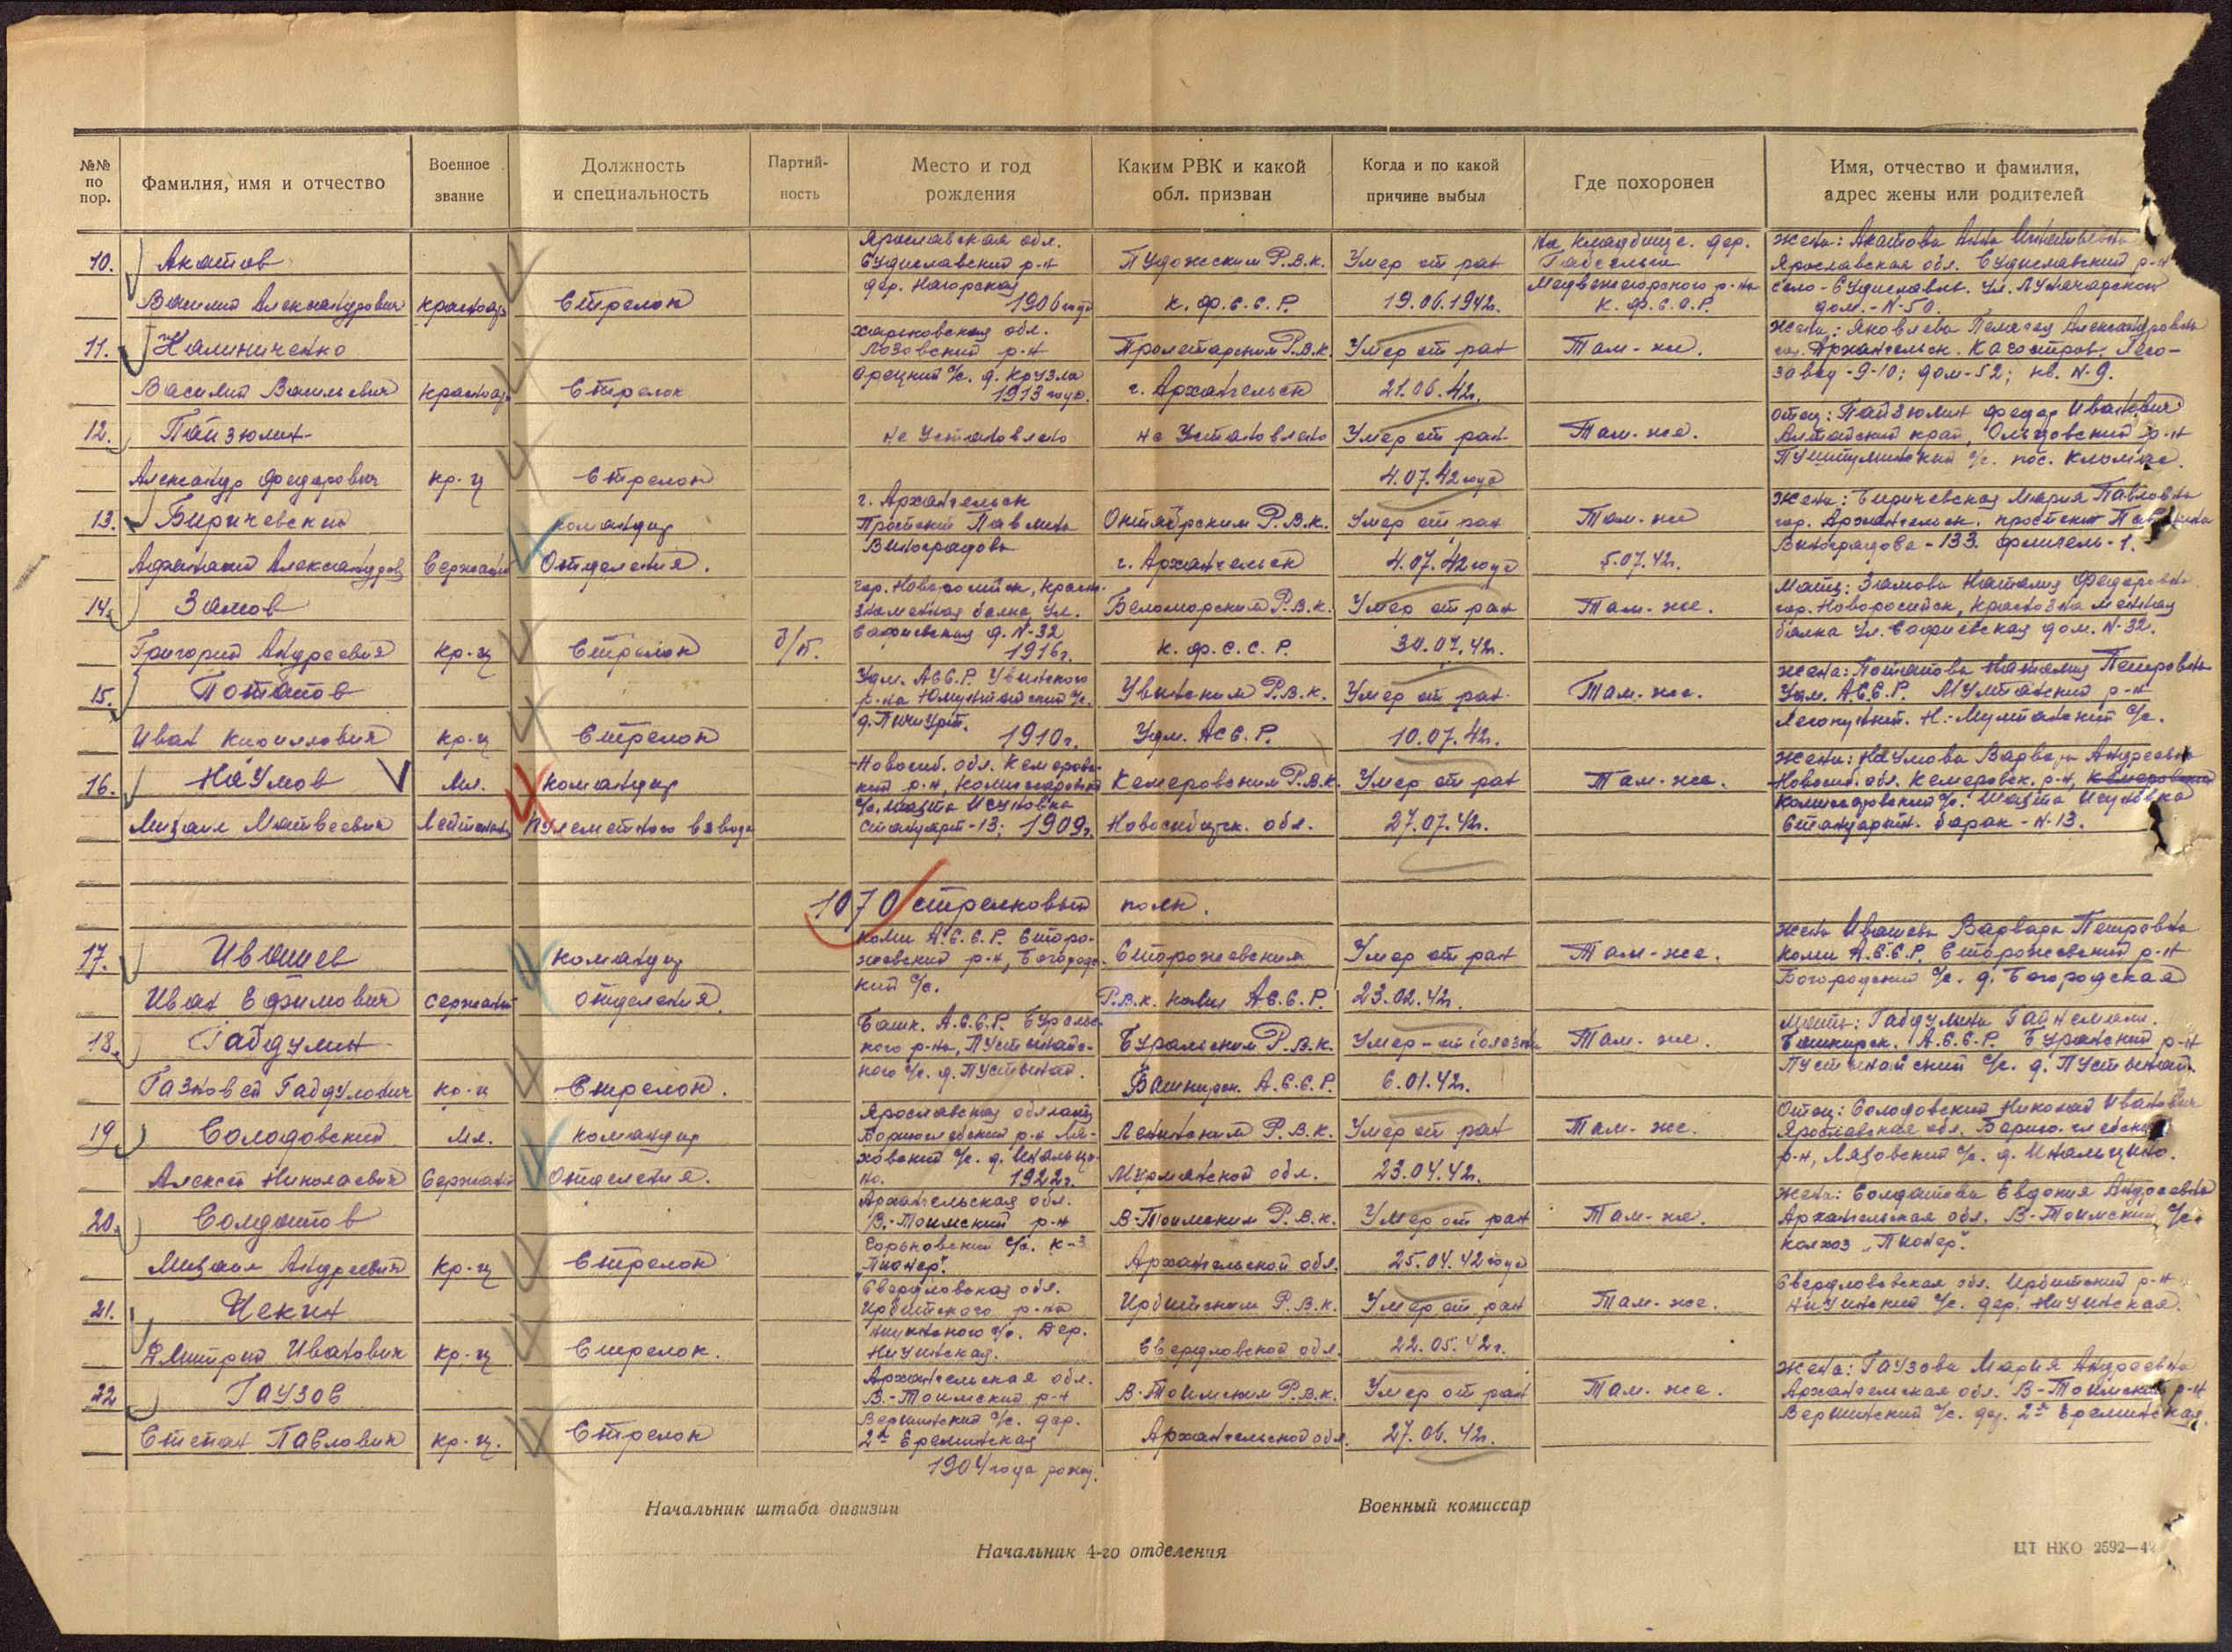 №№ по пор.
Фамилия, имя и отчество
Военное звание
Должность и специальность
Партий- ность
Место и год рождения
Каким РВК и какой обл. призван
Когда и по какой причине выбыл
Где похоронен
Имя, отчество и фамилия, адрес жены или родителей
10. Акатов
Василий Александрович
красноар.
Стрелок
Ярославская обл.
Судиславский р-н
дер. Нагорская
1906 года
Пудожским Р.В.К.
К.Ф.С.С.Р.
Умер от ран
19.06.1942г.
На кладбище. дер.
Габсельга
Медвежегорского р-на
К.Ф.С.С.Р.
Жена: Акатова Анна
Ярославская обл. Судиславский р-н
Село-Судиславль. Ул. Луначарского
дом.-N-50.
11. Калиниченко
Василий Васильевич
красноар.
Стрелок
Харьковская обл.
Лозовский р-н
с/с. д.
1913 года.
Пролетарским Р.В.К.
г. Архангельск
Умер от ран
21.06.42г.
Там-же.
Жена: Яковлева Пелагея Александровна
гор. Архангельск. Лесо-
завод-9-10; дом-52; кв. N-9.
12. Пайзюлин
Александр Федорович
кр-ц
Стрелок
не Установлено
не Установлено
Умер от ран
4.07.42 года
Там-же.
Отец: Пайзюлин Федор Иванович
Алтайский край, р-н
с/с. пос.
13. Биричевский
Афанасий Александров
Сержант
командир
Отделения.
г. Архангельск
Проспект Павлина
Виноградова
Октябрским Р.В.К.
г. Архангельск
Умер от ран
4.07.42 года
Там-же
5.07.42г.
Жена: Биричевская Мария Павловна
гор. Архангельск. проспект Павлина
Виноградова-133. флигель-1.
14. Замов
Григорий Андреевич
кр-ц
Стрелок
б/п.
гор. Новоросийск, Красно-
знаменная балка, ул.
Софиевская д. N-32
1916г.
Беломорским Р.В.К.
К.Ф.С.С.Р.
Умер от ран
30.07.42г.
Там-же.
Мать: Замова Наталия Федоровна
гор. Новоросийск, Краснознаменная
балка ул. Софиевская дом. N-32.
15. Потапов
Иван Кириллович
кр-ц
Стрелок
Удм. АССР. Увинского
р-на с/с.
д.
1910г.
Увинским Р.В.К.
Удм. АССР.
Умер от ран
10.07.42г.
Там-же.
Жена: Потапова Наталия Петровна
Удм. А.С.С.Р. р-н
Н.-Мултанский с/с.
16. Наумов
Михаил Матвеевич
Мл.
Лейтенант
командир
пулеметного взвода
Новосиб. обл. Кемеровс-
кий р-н,
с/с. шахта
Стандарт-13; 1909г.
Кемеровским Р.В.К.
Новосибирск. обл.
Умер от ран
27.07.42г.
Там-же.
Жена: Наумова Варвара Андреевна
Новосиб. обл. Кемеровск. р-н,
с/с. Шахта
Стандартн. барак-N-13.
1070 стрелковый полк.
17. Ивашев
Иван Ефимович
сержант
командир
отделения.
Коми А.С.С.Р. Сторо-
жевский р-н, Богородс-
кий с/с.
Сторожевским
Р.В.К. Коми АССР.
Умер от ран
23.02.42г.
Там-же.
Жена Ивашева Варвара Петровна
Коми А.С.С.Р. Сторожевский р-н
Богородский с/с. д. Богородская
18. Габдулин
Газновей Габдулович
кр-ц
Стрелок.
Башк. А.С.С.Р. Бураевс-
кого р-на,
кого с/с. д.
Бураевским Р.В.К.
Башкирск. А.С.С.Р.
Умер-от болезни
6.01.42г.
Там-же.
Мать: Габдулина
Башкирск. А.С.С.Р. р-н
с/с. д.
19. Солодовский
Алексей Николаевич
Мл.
Сержант
командир
Отделения.
Ярославская область
Борисоглебский р-н Ля-
ховский с/с. д. Инальци-
но. 1922г.
Ленинский Р.В.К.
Мурманской обл.
Умер от ран
23.04.42г.
Там-же.
Отец: Солодовский Николай Иванович
Ярославская обл.
р-н, с/с. д. Инальцино.
20. Солдатов
Михаил Андреевич
кр-ц
Стрелок
Архангельская обл.
В.-Тоимский р-н
Горьковский с/с. к-з
"Пионер".
В-Тоимским Р.В.К.
Архангельской обл.
Умер от ран
25.04.42 года
Там-же.
Жена: Солдатова Евдокия Андреевна
Архангельская обл. В-Тоимский с/с.
колхоз "Пионер".
21. Чекин
Дмитрий Иванович
кр-ц
Стрелок.
Свердловская обл.
Ирбитского р-на
с/с. Дер.
Ницинская.
Ирбитским Р.В.К.
Свердловской обл.
Умер от ран
22.05.42г.
Там-же.
Свердловская обл. Ирбитский р-н
Ницинский с/с. дер. Ницинская.
22 Гаузов
Степан Павлович
кр-ц.
Стрелок
Архангельская обл.
В.-Тоимский р-н
Вершинский с/с. дер.
2я Еремиская
1904 года рожд.
В-Тоимским Р.В.К.
Архангельской обл.
Умер от ран
27.06.42г.
Там-же.
Жена: Гаузова Мария Андреевна
Архангельская обл. В-Тоимский р-н
Вершинский с/с. дер. 2я
Начальник штаба дивизии
Военный комиссар
Начальник 4-го отделения
ЦТ НКО 2592—42